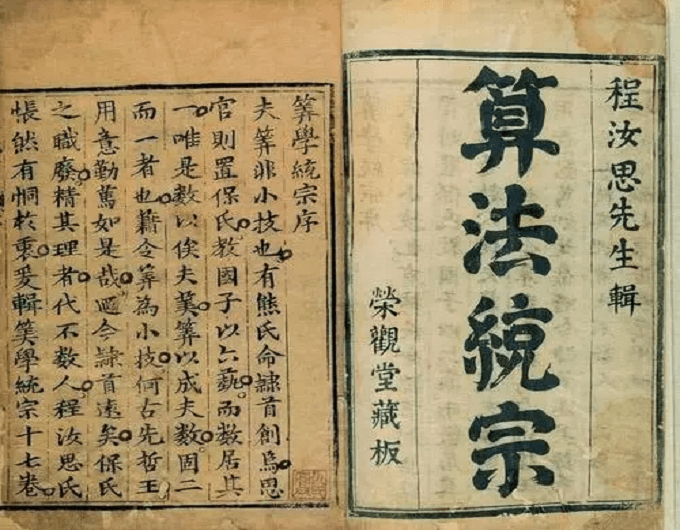 程汝思先生輯
算法統宗
榮觀堂藏板
筭學統宗序
夫筭非小技也有熊氏命隷首創爲思
官則置保氏教國子以六藝而數居其
一唯是數以俟夫筭以成夫數固二
而一者也藉令筭為小技何古先哲王
用意勤篤如是哉迺今隷首遠矣保氏
之職廢精其理者代不數人程汝思氏
悵然有恫於衷爰輯筭學統宗十七卷